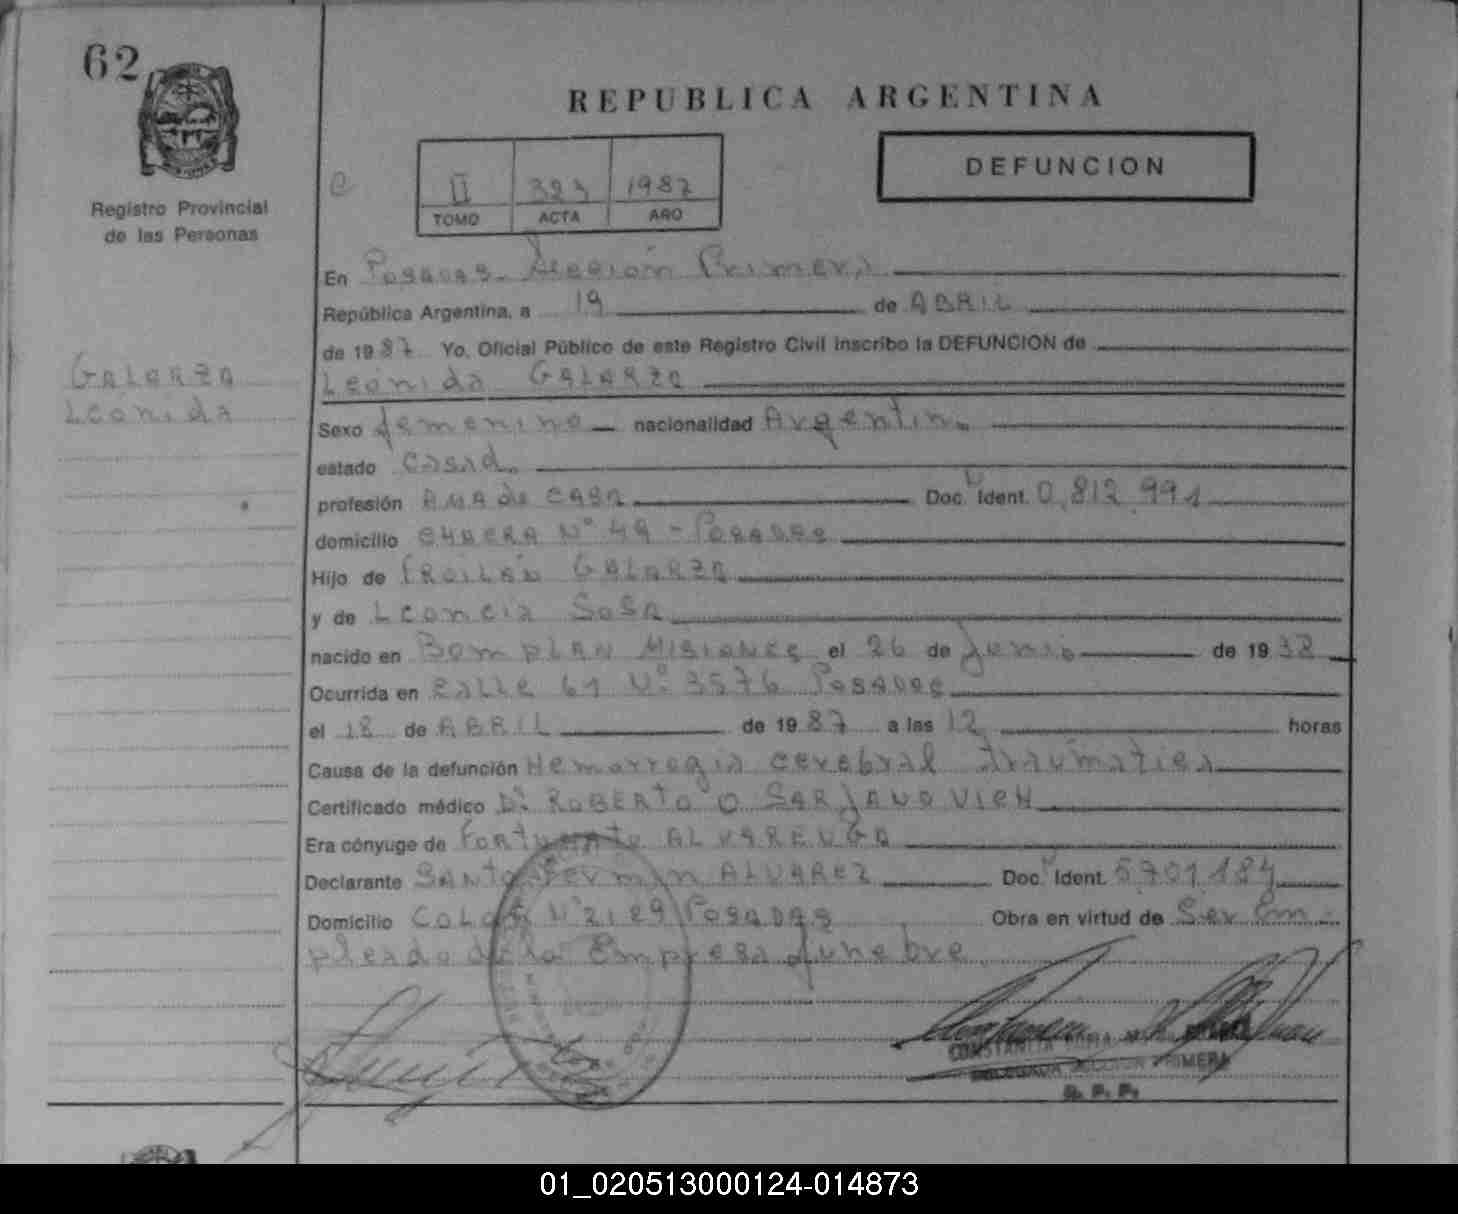 62
REPUBLICA ARGENTINA
DEFUNCION
II 323 1987
TOMO ACTA AÑO
Registro Provincial
de las Personas
GALARZA
Leónida
En Posadas - Sección Primera
República Argentina, a 19 de ABRIL
de 1987 Yo, Oficial Público de este Registro Civil inscribo la DEFUNCION de
Leónida GALARZA
Sexo femenino nacionalidad Argentina
estado casada
profesión AMA de CASA Doc. Ident. 0.812.991
domicilio CHACRA N° 49 - POSADAS
Hijo de FROILÁN GALARZA
y de Leoncia SOSA
nacido en BOMPLAN MISIONES el 26 de junio de 1938
Ocurrida en CALLE 61 N° 3576 POSADAS
el 18 de ABRIL de 1987 a las 12 horas
Causa de la defunción Hemorregia cerebral traumatica
Certificado médico Dr. ROBERTO O SARJANOVICH
Era cónyuge de Fortunato ALVARENGA
Declarante SANTO Fermin ALVAREZ Doc. Ident. 5.701.184
Domicilio COLON N° 2129 POSADAS Obra en virtud de Ser Em-
pleado de la Empresa funebre.
DELEGADA SECCION PRIMERA
R. P. P.
01_020513000124-014873